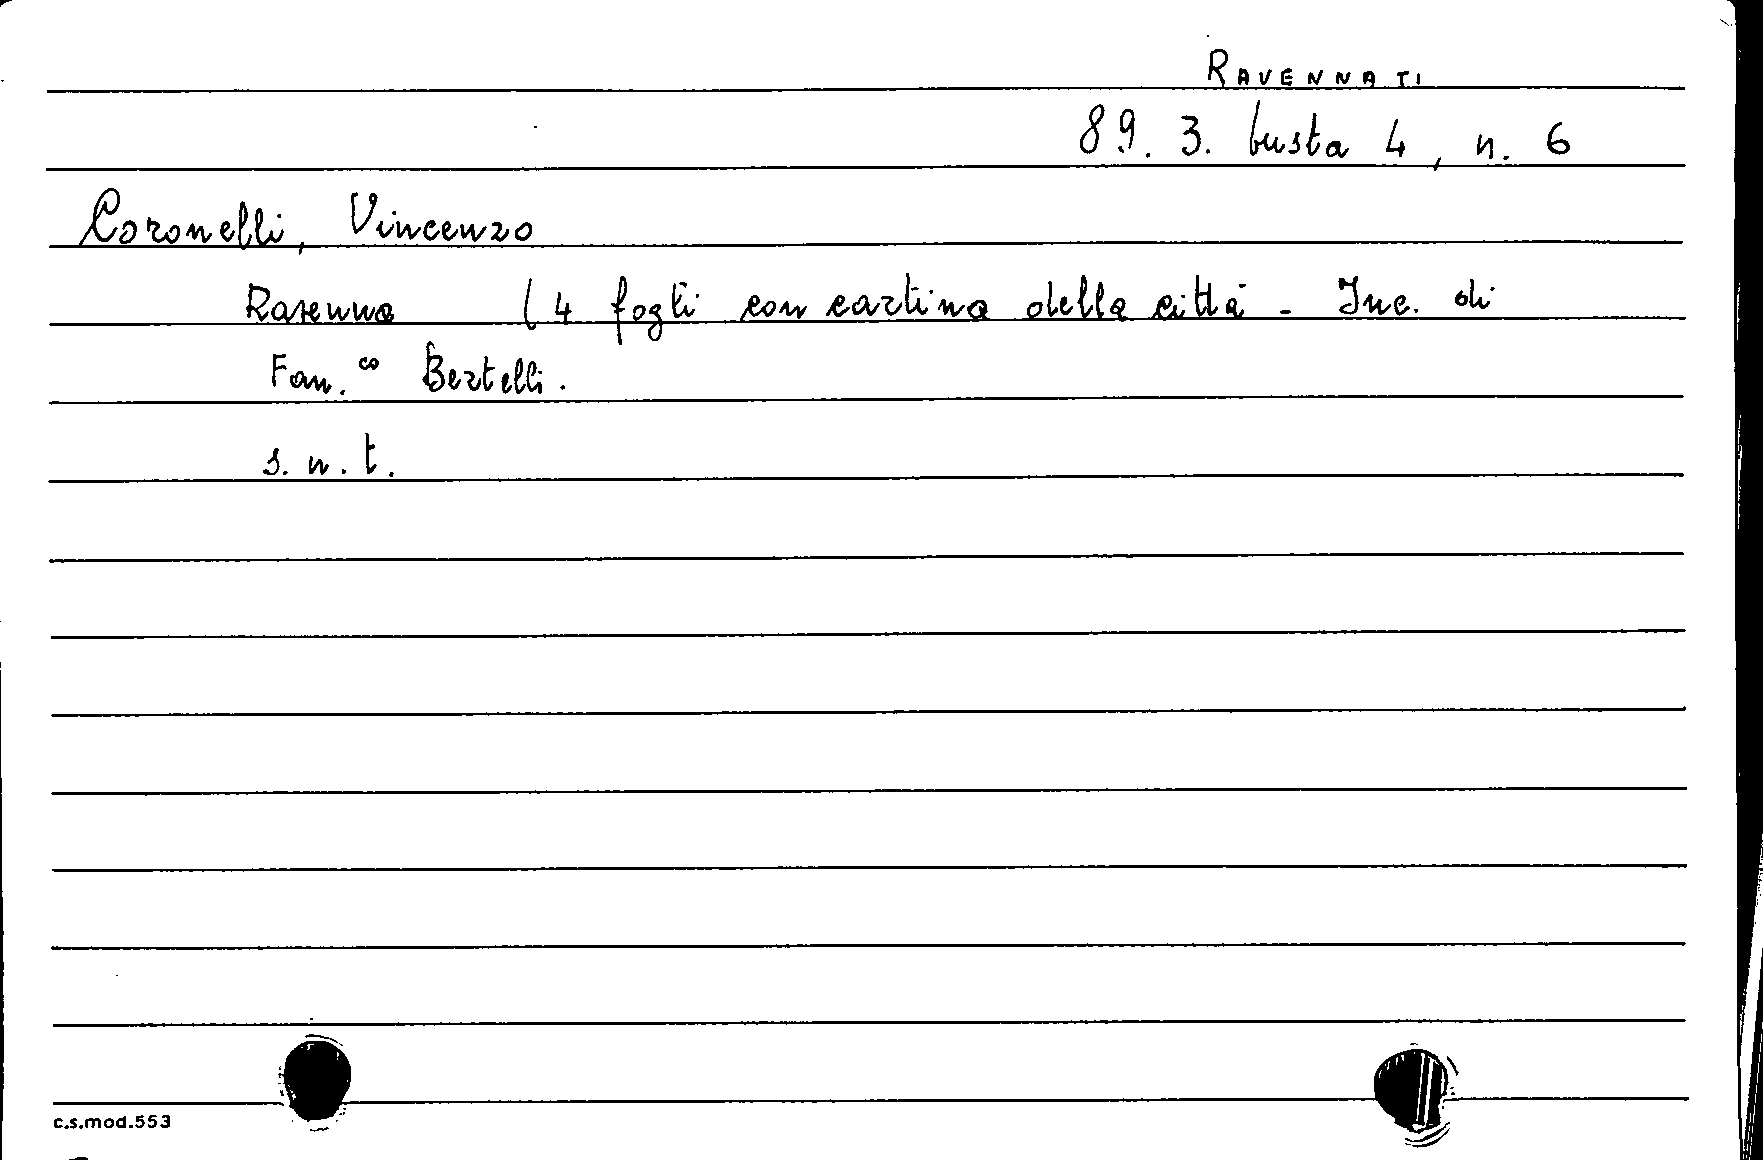 RAVENNATI
89. 3. busta 4, n. 6
Coronelli, Vincenzo
Ravenna (4 fogli con cartina della città - Inc. di
Fan.co Bertelli.
s. n. t.
c.s.mod.553